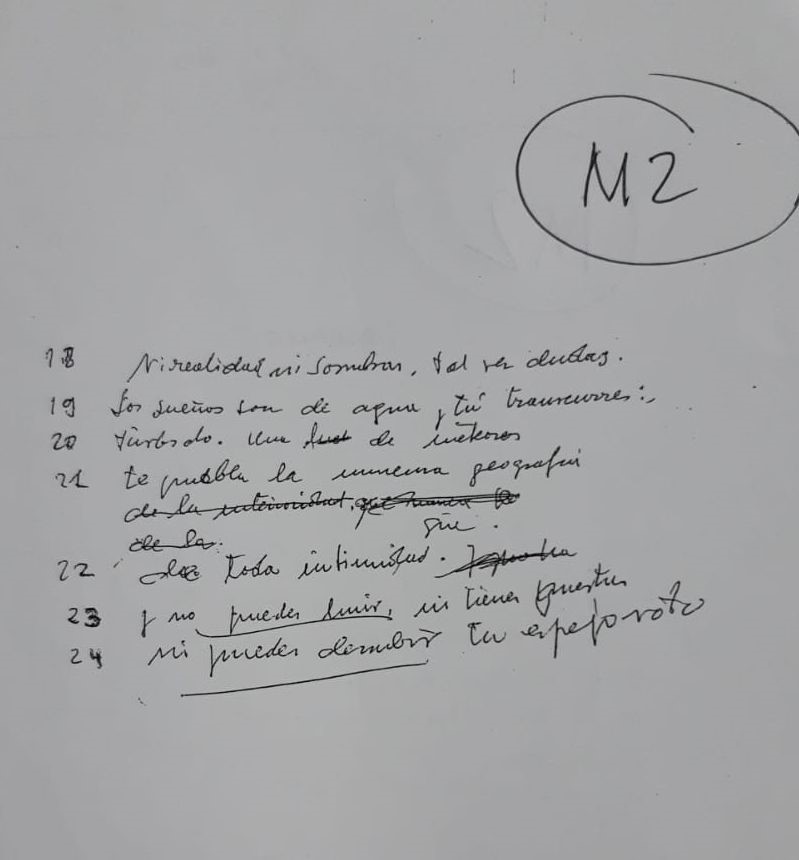 M2
18 Ni realidad ni sombras, tal vez dudas.
19 Los sueños son de agua, tú transcurres:,
20 túrbido. Una de
21 te puebla la inmensa geografía
de la intimidad, que nunca
que.
de la.
22 de toda intimidad.
23 y no puedes huir, ni tienes puertas
24 ni puedes descubrir tu espejo roto